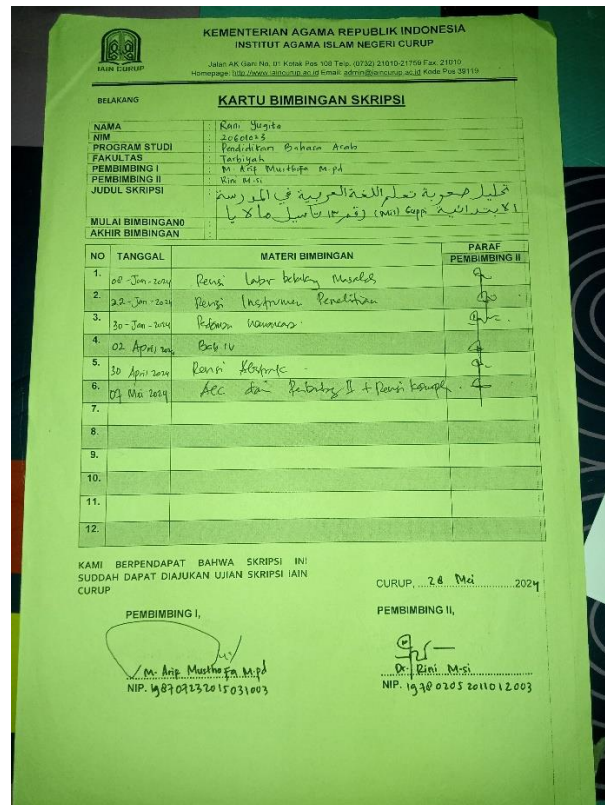 IAIN CURUP
KEMENTERIAN AGAMA REPUBLIK INDONESIA
INSTITUT AGAMA ISLAM NEGERI CURUP
Jalan AK Gani No. 01 Kotak Pos 108 Telp. (0732) 21010-21759 Fax. 21010
Homepage: http://www.iaincurup.ac.id Email: admin@iaincurup.ac.id Kode Pos 39119
BELAKANG
KARTU BIMBINGAN SKRIPSI
NAMA : Rani Yugita
NIM : 20601023
PROGRAM STUDI : Pendidikan Bahasa Arab
FAKULTAS : Tarbiyah
PEMBIMBING I : M. Arip Musthofa M.pd
PEMBIMBING II : Rini M.si
JUDUL SKRIPSI : تحليل صعوبة تعلم اللغة العربية في المدرسة
الابتدائية Guppi (Mis) رقم ١٣ تاسيل مالايا
MULAI BIMBINGAN0 :
AKHIR BIMBINGAN :
NO TANGGAL MATERI BIMBINGAN PARAF PEMBIMBING II
1. 08-Jan-2024 Revisi Latar belakang Masalah
2. 22-Jan-2024 Revisi Instrumen Penelitian
3. 30-Jan-2024 Pedoman wawancara.
4. 02 April 2024 Bab IV
5. 30 April 2024 Revisi Abstrak
6. 07 Mei 2024 Acc dari Pembimbing II + Revisi
7.
8.
9.
10.
11.
12.
KAMI BERPENDAPAT BAHWA SKRIPSI INI
SUDDAH DAPAT DIAJUKAN UJIAN SKRIPSI IAIN
CURUP
CURUP, 28 Mei 2024
PEMBIMBING I,
M. Arip Musthofa M.pd
NIP. 198707232015031003
PEMBIMBING II,
Dr. Rini M-si
NIP. 19780205 2011012003